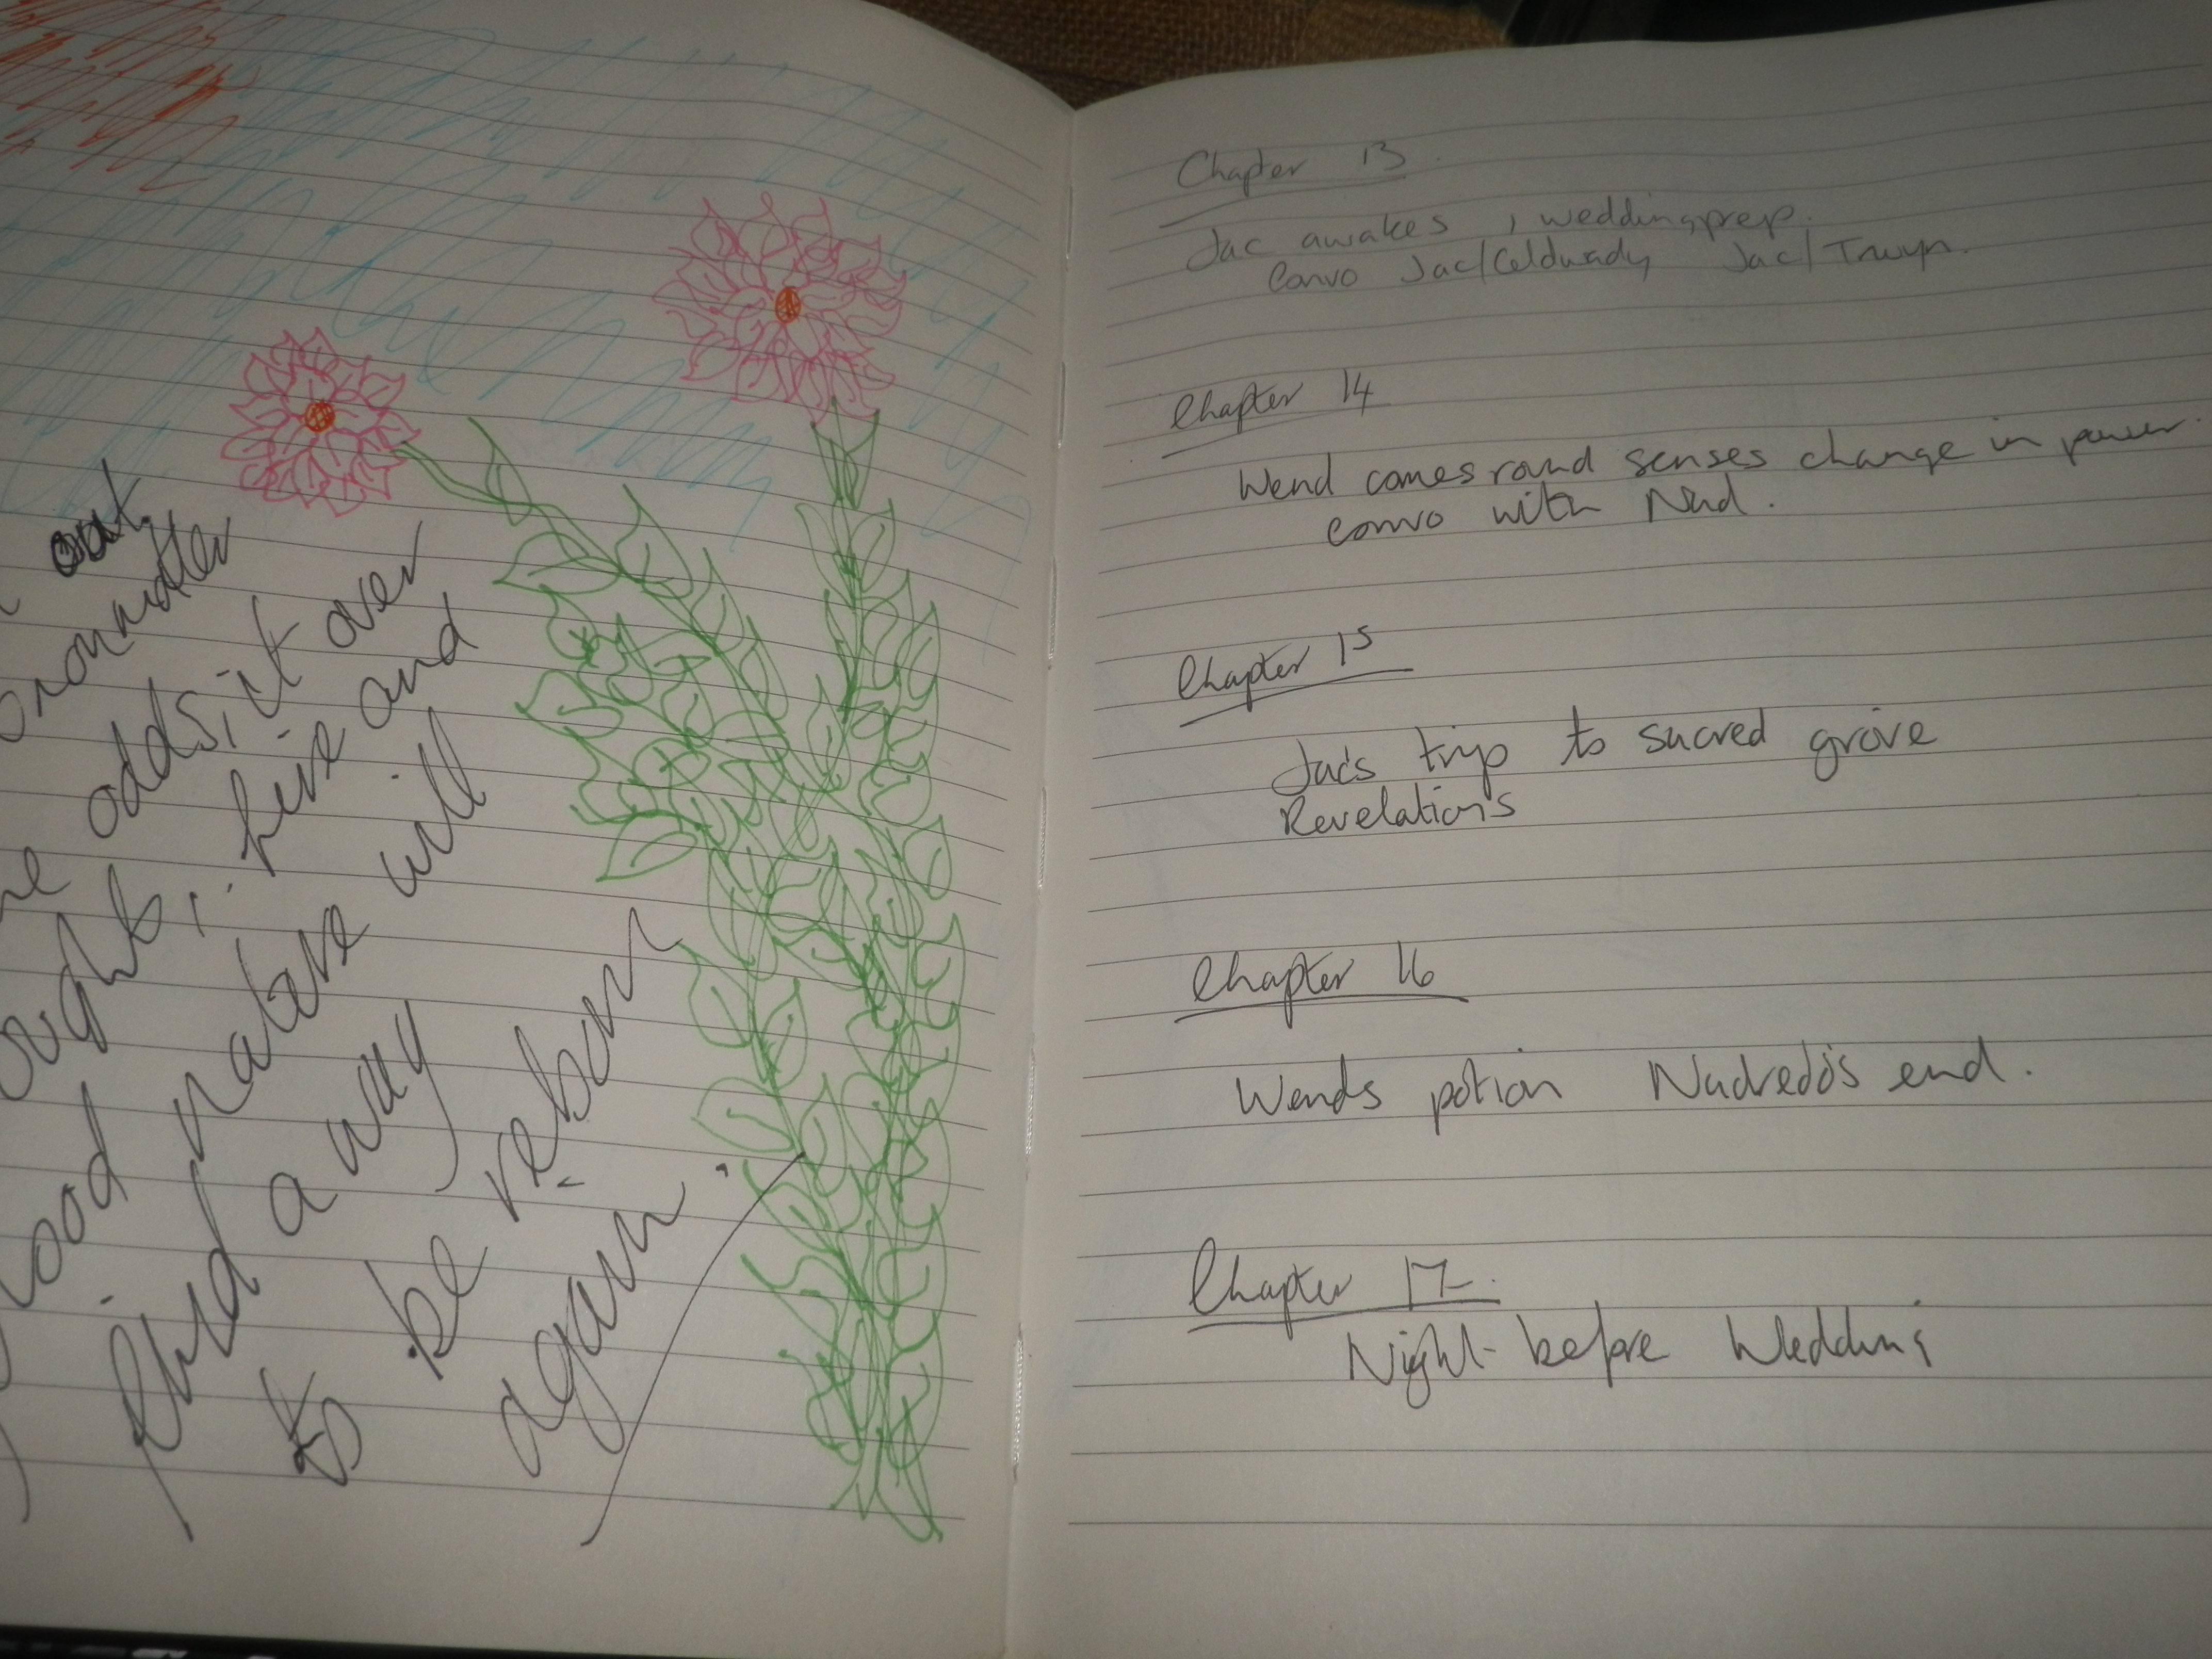 out
no matter
odds, it over
live and
good nature will
find a way
to be reborn
again.
Chapter 13.
Jac awakes, wedding prep.
Convo Jac/Celdwady Jac/Trwyn.
Chapter 14
Wend comes round senses change in power.
convo with Nud.
Chapter 15
Jac's trip to sacred grove
Revelations
Chapter 16
Wends potion Nadredd's end.
Chapter 17.
Night before Wedding